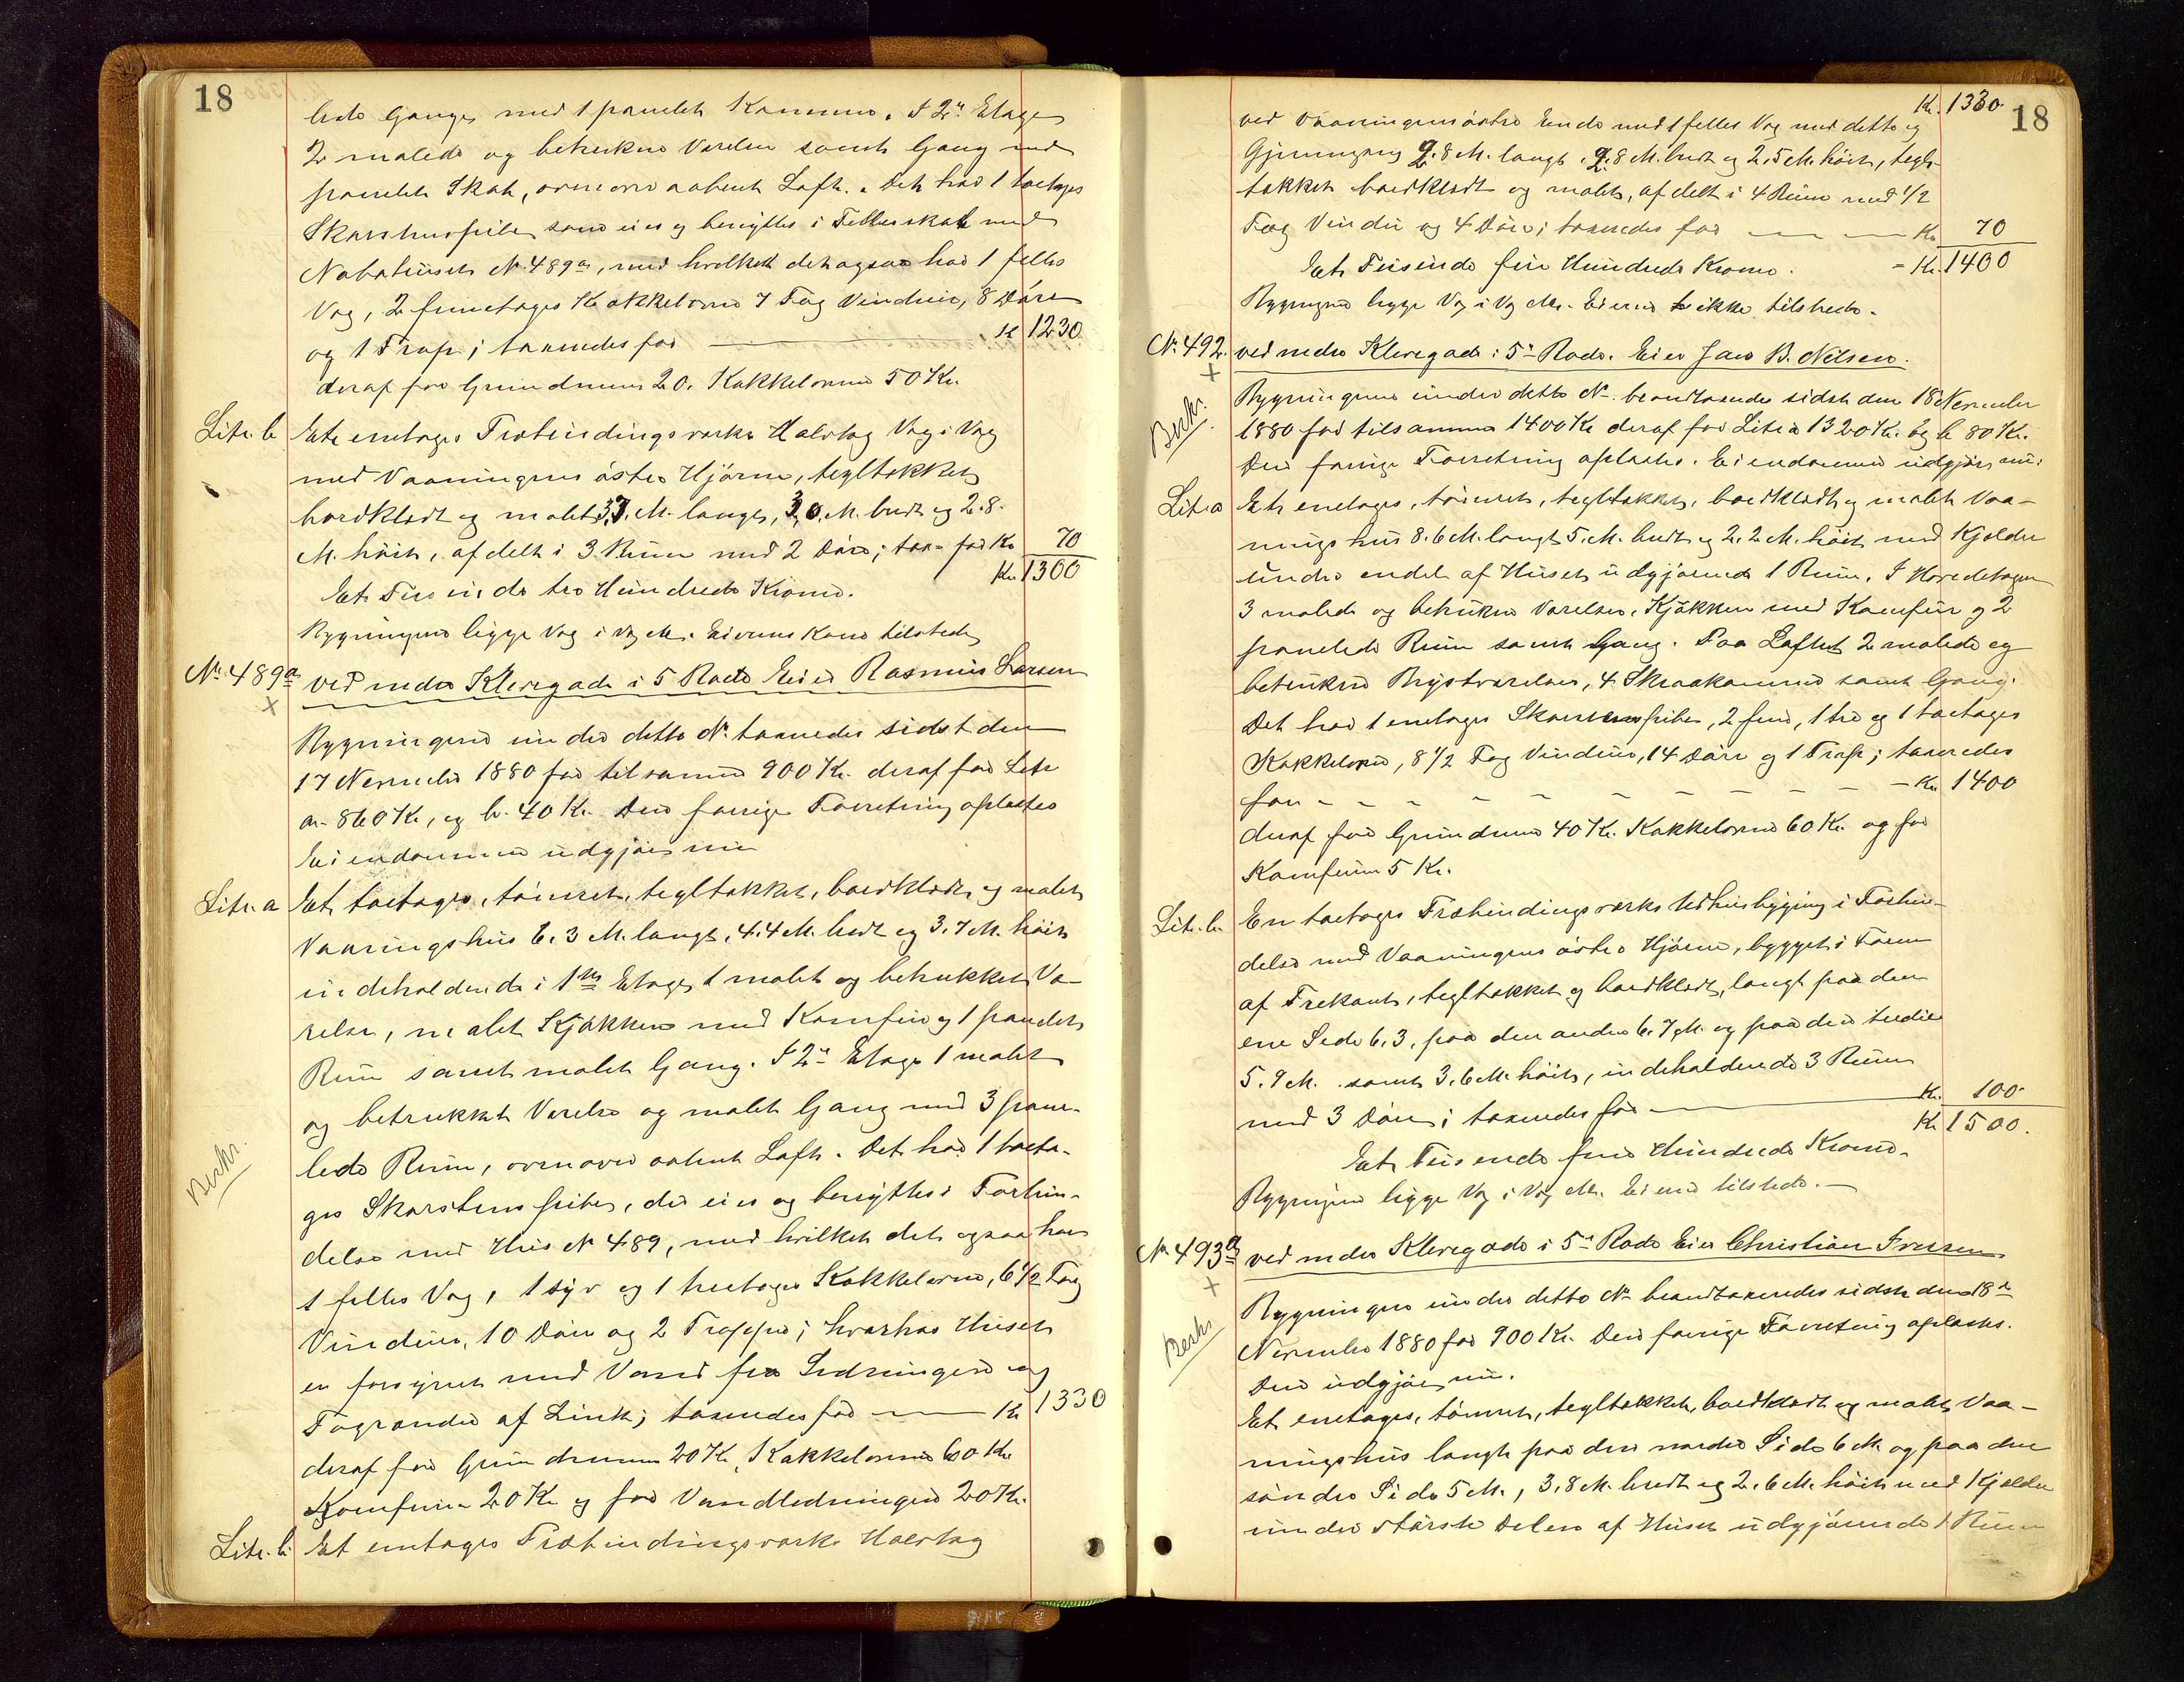 18
lede Gange med 1 panelet Kammer. I 2n Etage
2 malede og betrukne Værelser samt Gang med
panelet Skab, ovenover aabent Loft. Det har 1 toetages
Skorstenspibe som eies og benyttes i Fellesskab med
Nabohuset N. 489a, med hvilket det ogsaa har 1 felles
Væg, 2 fireetages Kakkelovne 7 Fag Vinduer, 8 Døre
og 1 Trap; taxeredes for — Kr 1230.
deraf for Grundmur 20. Kakkelovne 50 Kr.
Litr. b Et enetages Træbindingsverks Halvtag Væg i Væg
med Vaaningens østre Hjørne, tegltækket
bordklædt og malet 3.7. M. langt, 3.0. M. bredt og 2.8.
M. høit, afdelt i 3 Rum med 2 Døre; tax- for Kr 70
Kr. 1300
Et Tusinde tre Hundrede Kroner.
Bygningerne ligge Væg i Væg &c. Eierens Kone tilstede
No 489a ved nedre Klevegade i 5 Rode Eier Rasmus Larsen
Bygningerne under dette No taxeredes sidst den
17 November 1880 for tilsammen 900 Kr. deraf for Litr
a- 860 Kr, og b- 40 Kr. Den forrige Forretning oplæstes
Eiendommen udgjør nu
Litr. a Et toetages, tømret, tegltækket, bordklædt og malet
Vaaningshus 6.3 M. langt, 4.4 M. bredt og 3.7 M. høit
indeholdende i 1ste Etage 1 malet og betrukket Væ-
relse, malet Kjøkken med Komfur og 1 panelet
Rum samt malet Gang. I 2n Etage 1 malet
og betrukket Værelse og malet Gang med 3 pane-
lede Rum, ovenover aabent Loft. Det har 1 toeta-
Beskr.
ges Skorstenspibe, der eies og benyttes i Forbin-
delse med Hus N 489, med hvilket det ogsaa har
1 felles Væg, 1 syv og 1 treetages Kakkelovne, 6 1/2 Fag
Vinduer, 10 Døre og 2 Trapper; hvorhos Huset
er forsynet med Vand fra Ledningen og
Tagrender af Zink; taxeredes for — Kr 1330
deraf for Grundmuren 20 Kr, Kakkelovne 60 Kr
Komfuren 20 Kr og for Vandledningen 20 Kr.
Litr. b. Et enetages Træbindingsverks Halvtag
Kr. 1330
18
ved Vaaningens østre Ende med 1 felles Væg med dette og
Gjennemgang 2.8 M. langt, 2.8 M. bredt og 2.5 M. høit, tegl-
tækket bordklædt og malet, afdelt i 4 Rum med 1/2
Fag Vindu og 4 Døre; taxeredes for — — Kr 70
Et Tusinde fire Hundrede Kroner. - Kr. 1400
Bygningerne ligge Væg i Væg &c. Eieren ikke tilstede.
No. 492. ved nedre Klevegade i 5n Rode. Eier Jens B. Nilsen.
Beskr.
Bygningerne under dette No brandtaxeredes sidst den 18 November
1880 for tilsammen 1400 Kr deraf for Litr a 1320 Kr. og b 80 Kr.
Den forrige Forretning oplæstes. Eiendommen udgjør nu:
Litr. a Et enetages, tømret, tegltækket, bordklædt og malet Vaa-
ningshus 8.6 M. langt 5. M. bredt og 2.2 M. høit med Kjelder
under endel af Huset udgjørende 1 Rum. I Hovedetagen
3 malede og betrukne Værelser, Kjøkken med Komfur og 2
panelede Rum samt Gang. Paa Loftet 2 malede og
betrukne Brystværelser, 4 Skraakammere samt Gang.
Det har 1 enetages Skorstenspibe, 2 fem, 1 tre og 1 toetages
Kakkelovne, 8 1/2 Fag Vinduer, 14 Døre og 1 Trap; taxeredes
for - - - - - - - - - Kr 1400
deraf for Grundmur 40 Kr. Kakkelovne 60 Kr. og for
Komfuren 5 Kr.
Litr. b. En toetages Træbindingsverks Udhusbygning i Forbin-
delse med Vaaningens østre Hjørne, bygget i Form
af Trekant, tegltækket og bordklædt, langt paa den
ene Side 6.3, paa den anden 6.7 M. og paa den tredie
5.9 M. samt 3.6 M. høit, indeholdende 3 Rum
med 3 Døre; taxeredes for — Kr. 100.
Kr 1500.
Et Tusende fem Hundrede Kroner.
Bygningerne ligge Væg i Væg &c. Eieren tilstede.—
No 493a ved nedre Klevegade i 5n Rode Eier Christian Iversen
Beskr
Bygningen under dette No brandtaxeredes sidst den 18n
November 1880 for 900 Kr. Den forrige Forretning oplæstes.
Den udgjør nu.
Et enetages, tømret, tegltækket, bordklædt og malet Vaa-
ningshus langt paa den nordre Side 6 M. og paa den
søndre Side 5 M., 3.8 M. bredt og 2.6 M. høit med Kjelder
under største Delen af Huset udgjørende 1 Rum